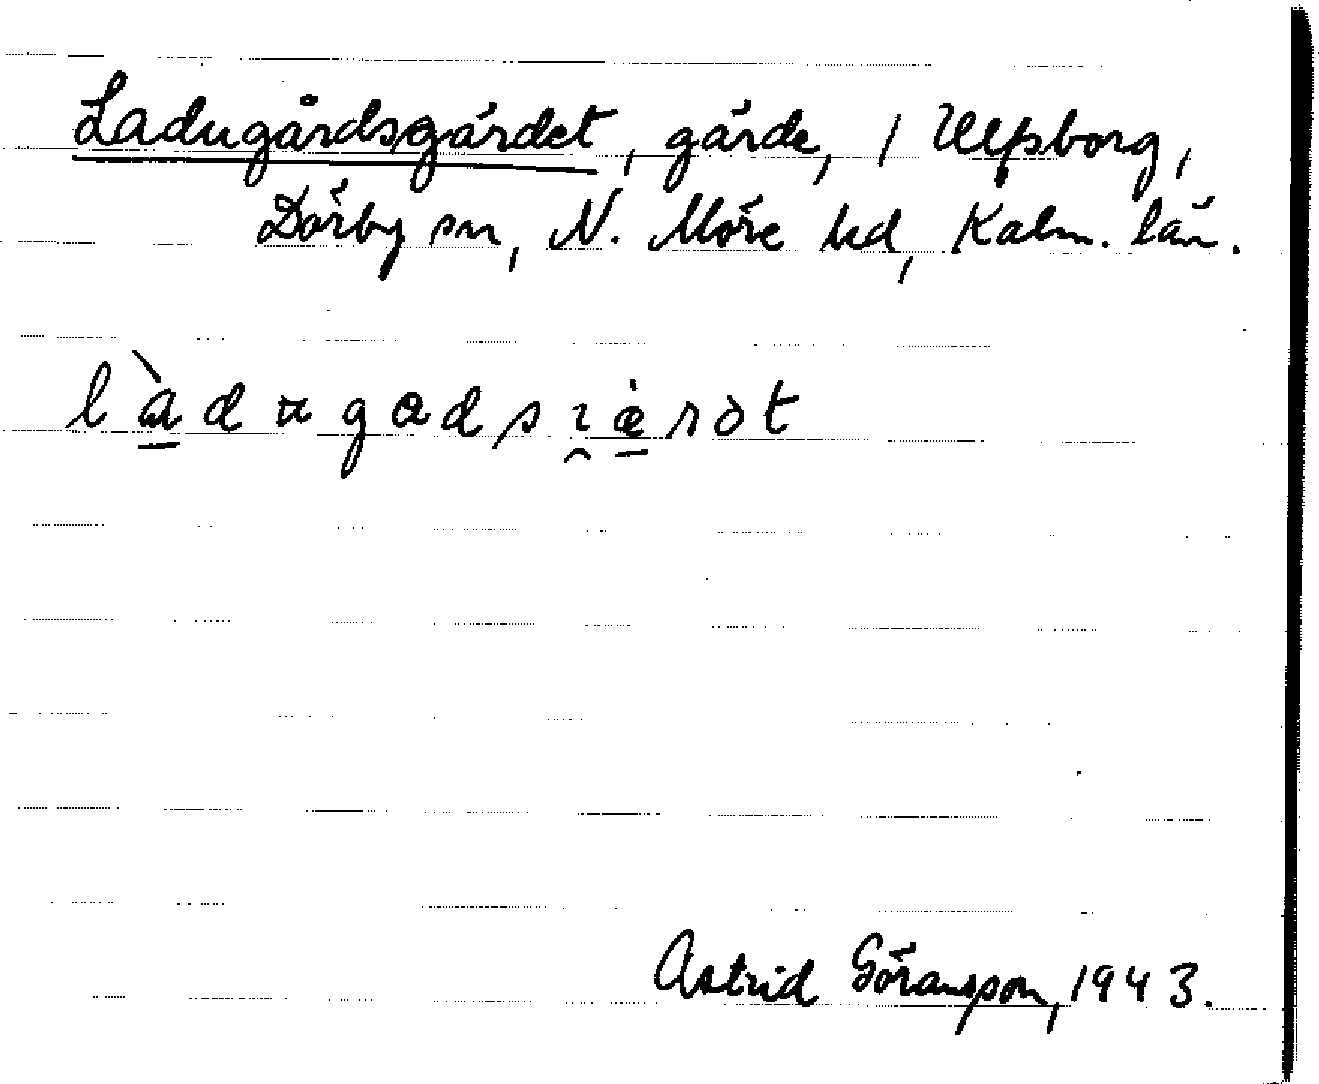 Ladugårdsgärdet, gärde, / Ulfsborg,
Dörby sn, N. Möre hd, Kalm. län.
Astrid Göransson, 1943.